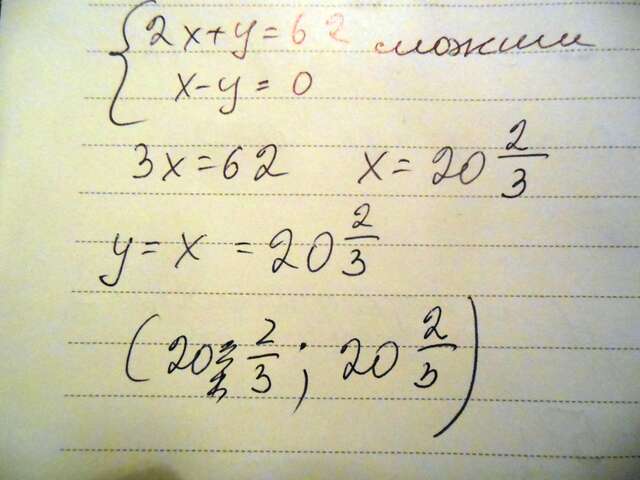 { 2x+y=62 сложим
x-y=0
3x=62 x=20 2/3
y=x=20 2/3
(20 2/3; 20 2/3)